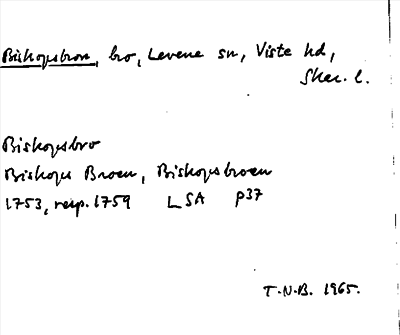 Biskopsbron, bro, Levene sn, Viste hd,
Skar. l.
Biskopsbro
Biskops Broen, Biskopsbroen
1753, resp. 1759 LSA P37
T.N.B. 1965.